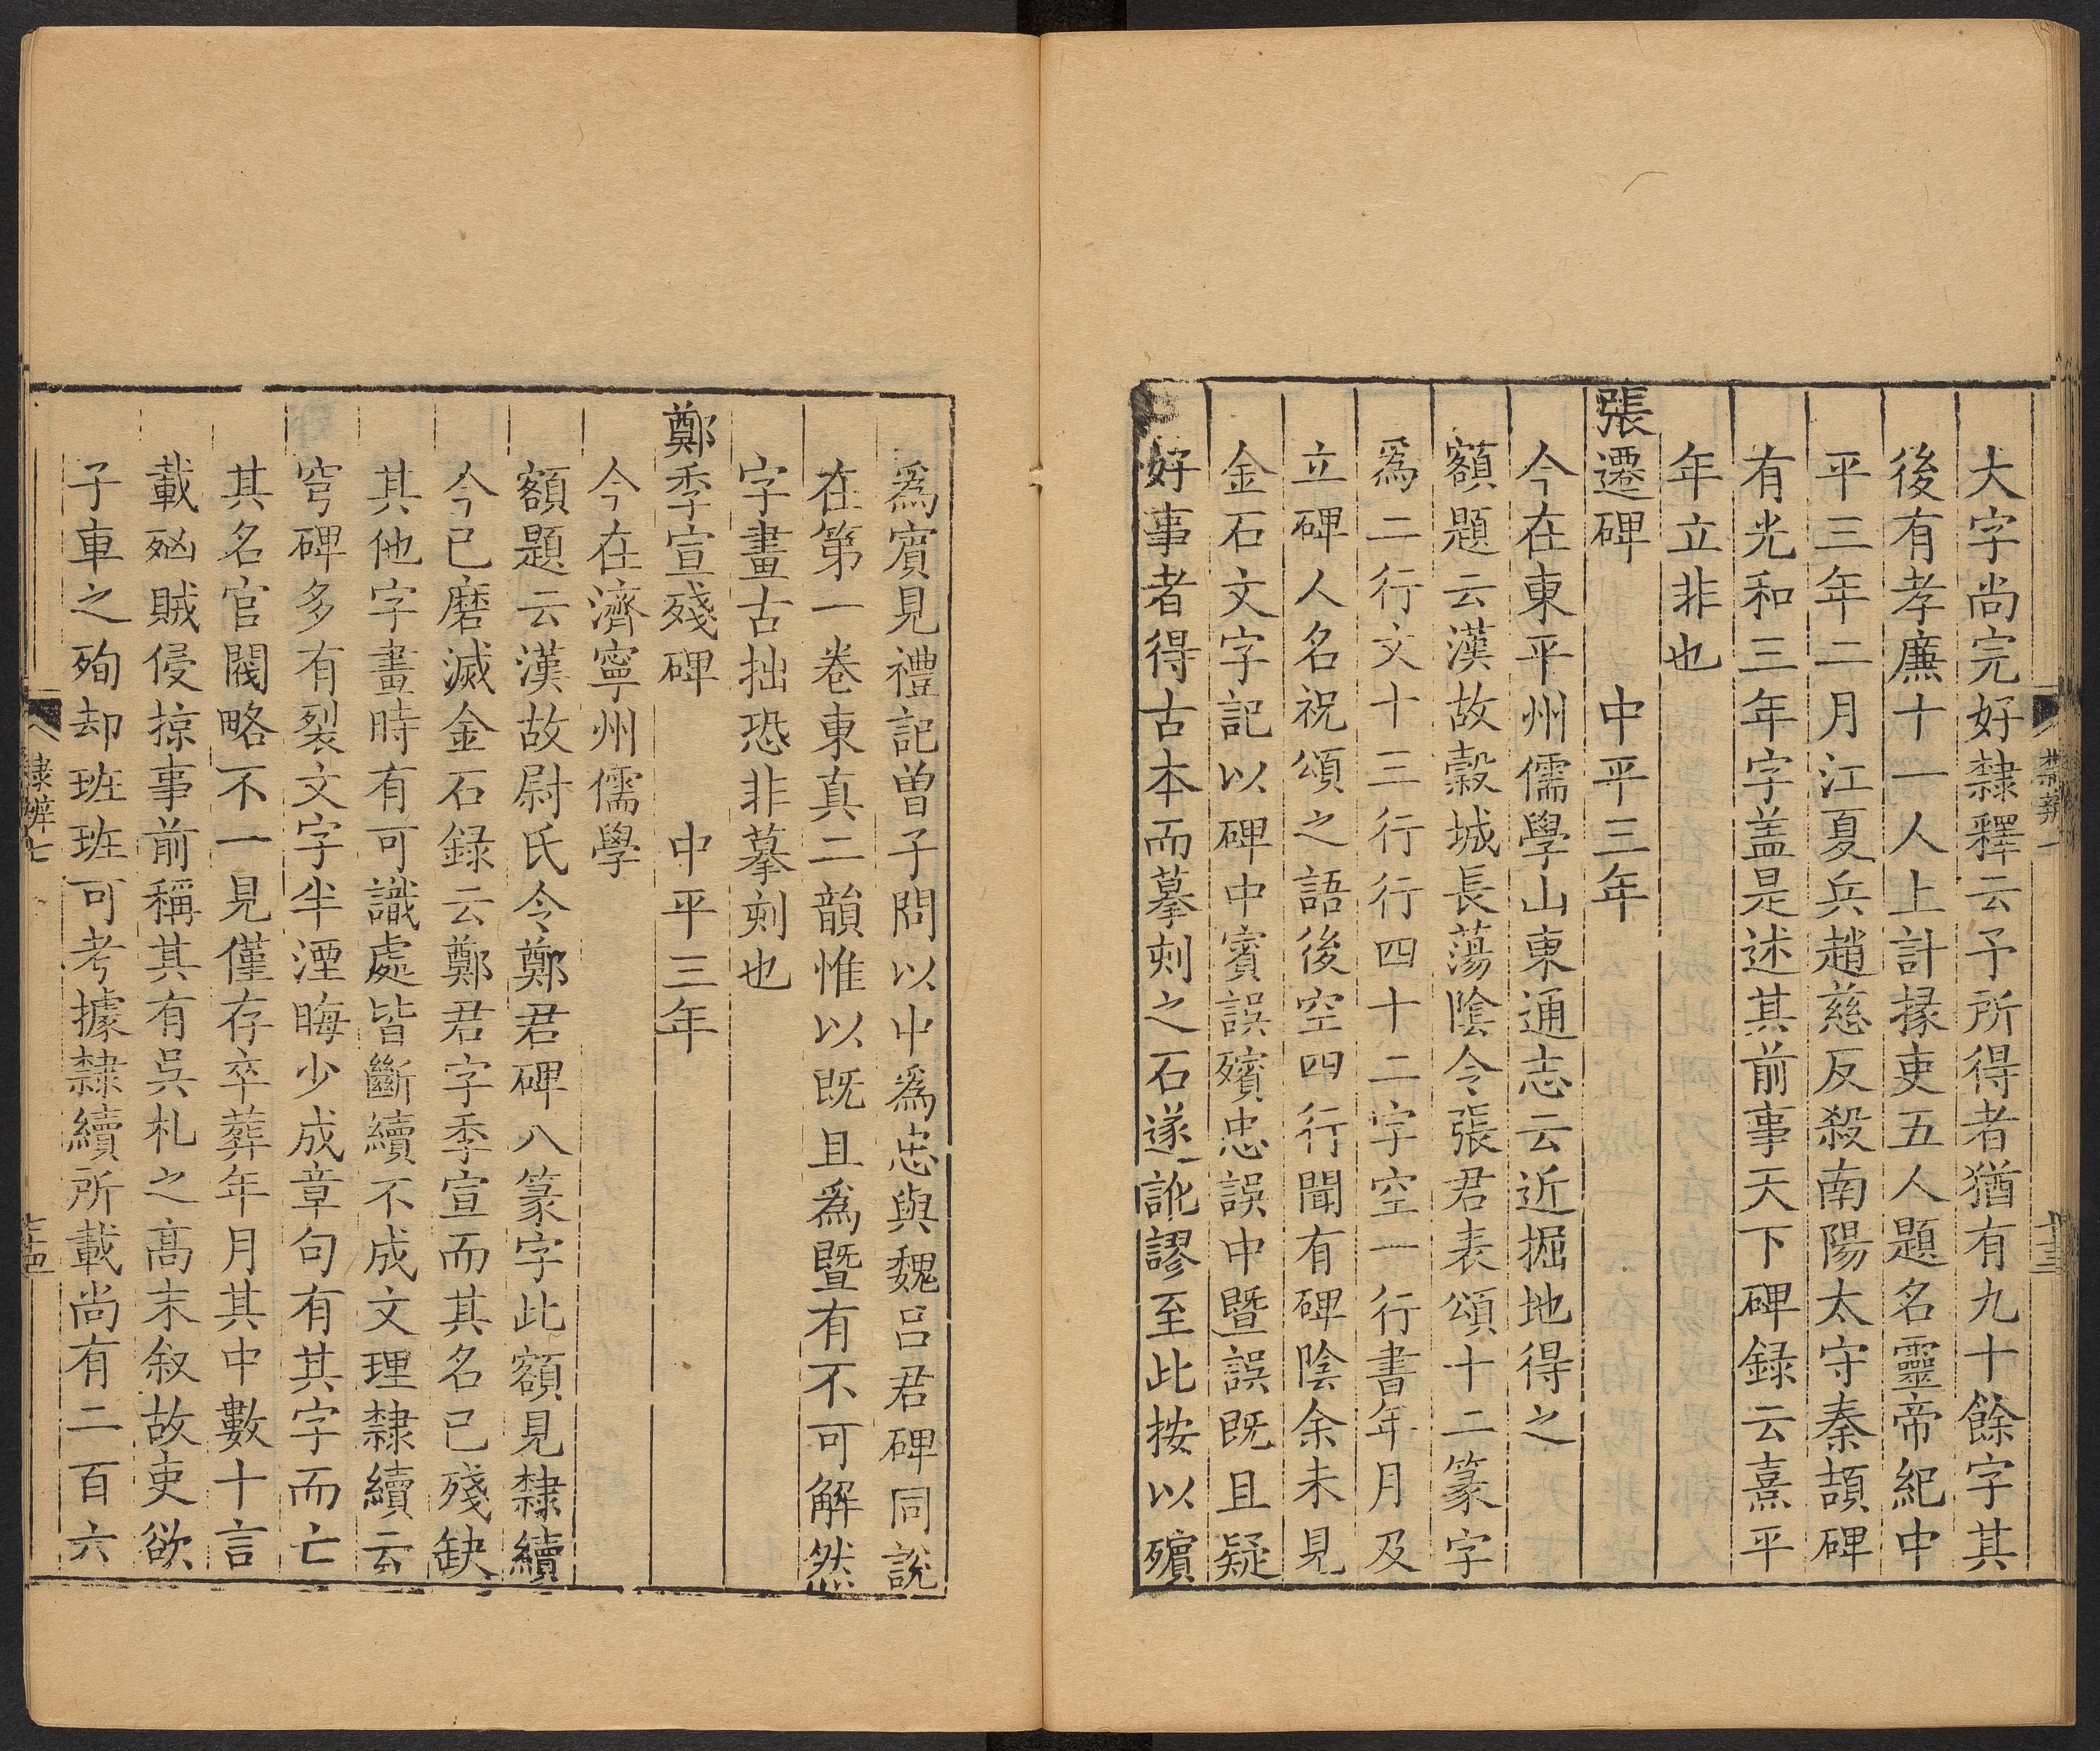 大字尚完好隸釋云予所得者猶有九十餘字其
後有孝廉十一人上計掾吏五人題名靈帝紀中
平三年二月江夏兵趙慈反殺南陽太守秦頡碑
有光和三年字盖是述其前事天下碑録云熹平
年立非也
張遷碑 中平三年
今在東平州儒學山東通志云近掘地得之
額題云漢故穀城長蕩陰令張君表頌十二篆字
爲二行文十三行行四十二字空一行書年月及
立碑人名祝頌之語後空四行聞有碑陰余未見
金石文字記以碑中賓誤殯忠誤中暨誤既且疑
好事者得古本而摹刻之石遂訛謬至此按以殯
爲賓見禮記曾子問以中爲忠與魏吕君碑同說
在第一卷東真二韻惟以既且爲暨有不可解然
字畫古拙恐非摹刻也
鄭季宣殘碑 中平三年
今在濟寧州儒學
額題云漢故尉氏令鄭君碑八篆字此額見隸續
今已磨滅金石録云鄭君字季宣而其名已殘缺
其他字畫時有可識處皆斷續不成文理隸續云
穹碑多有裂文字半湮晦少成章句有其字而亡
其名官閥略不一見僅存卒葬年月其中數十言
載兇賊侵掠事前稱其有吳札之高末叙故吏欲
子車之殉却班班可考據隸續所載尚有二百六
隸辨七